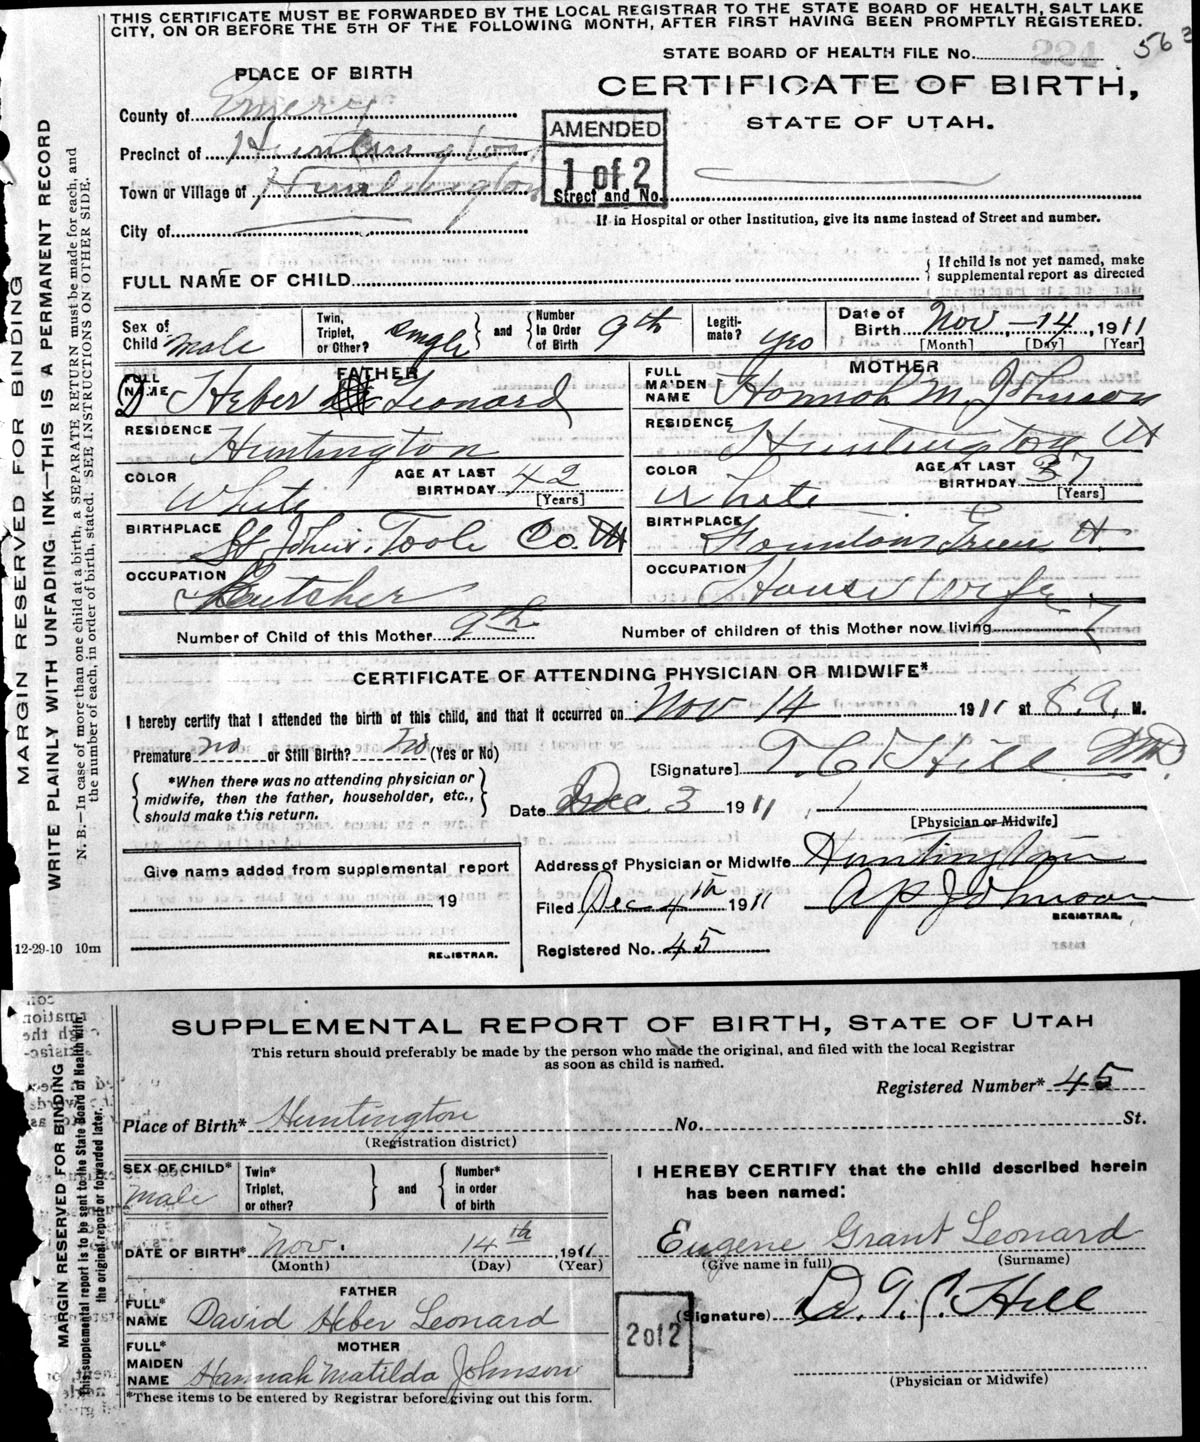 THIS CERTIFICATE MUST BE FORWARDED BY THE LOCAL REGISTRAR TO THE STATE BOARD OF HEALTH, SALT LAKE
CITY, ON OR BEFORE THE 5TH OF THE FOLLOWING MONTH, AFTER FIRST HAVING BEEN PROMPTLY REGISTERED.
STATE BOARD OF HEALTH FILE No. 563
PLACE OF BIRTH
CERTIFICATE OF BIRTH,
STATE OF UTAH.
County of Emery
Precinct of Huntington
Town or Village of Huntington
City of
AMENDED
1 of 2
Street and No.
If in Hospital or other Institution, give its name instead of Street and number.
FULL NAME OF CHILD
If child is not yet named, make
supplemental report as directed
Sex of Child Male
Twin, Triplet, or Other? Single and Number In Order of Birth 9th
Legiti-mate? Yes
Date of Birth Nov - 14, 1911
[Month] [Day] [Year]
FATHER
FULL NAME D. Heber Leonard
RESIDENCE Huntington
COLOR White
AGE AT LAST BIRTHDAY 42 [Years]
BIRTHPLACE St Johns. Toole Co. Ut
OCCUPATION Butcher
MOTHER
FULL MAIDEN NAME Hannah M. Johnson
RESIDENCE Huntington Ut
COLOR White
AGE AT LAST BIRTHDAY 37 [Years]
BIRTHPLACE Fountain Green Ut
OCCUPATION House Wife
Number of Child of this Mother 9th
Number of children of this Mother now living 7
CERTIFICATE OF ATTENDING PHYSICIAN OR MIDWIFE*
I hereby certify that I attended the birth of this child, and that it occurred on Nov 14 1911 at 8 A. M.
Premature no or Still Birth? No (Yes or No)
[Signature] T. C. Hill MD
*When there was no attending physician or
midwife, then the father, householder, etc.,
should make this return.
Date Dec 3 1911
[Physician or Midwife]
Give name added from supplemental report
19
REGISTRAR.
Address of Physician or Midwife Huntington
Filed Dec 4th 1911 A P Johnson
REGISTRAR.
Registered No. 45
12-29-10 10m
MARGIN RESERVED FOR BINDING
WRITE PLAINLY WITH UNFADING INK—THIS IS A PERMANENT RECORD
N. B.—In case of more than one child at a birth, a SEPARATE RETURN must be made for each, and
the number of each, in order of birth, stated. SEE INSTRUCTIONS ON OTHER SIDE.
SUPPLEMENTAL REPORT OF BIRTH, STATE OF UTAH
This return should preferably be made by the person who made the original, and filed with the local Registrar
as soon as child is named.
Registered Number* 45
Place of Birth* Huntington No. St.
(Registration district)
SEX OF CHILD* Male
Twin* Triplet, or other? and Number* in order of birth
DATE OF BIRTH* Nov. 14th, 1911
(Month) (Day) (Year)
FATHER
FULL* NAME David Heber Leonard
MOTHER
FULL* MAIDEN NAME Hannah Matilda Johnson
*These items to be entered by Registrar before giving out this form.
I HEREBY CERTIFY that the child described herein
has been named:
Eugene Grant Leonard
(Give name in full) (Surname)
2 of 2
(Signature) Dr. T. C. Hill
(Physician or Midwife)
MARGIN RESERVED FOR BINDING
This supplemental report is to be sent to the State Board of Health with
the original report or forwarded later.